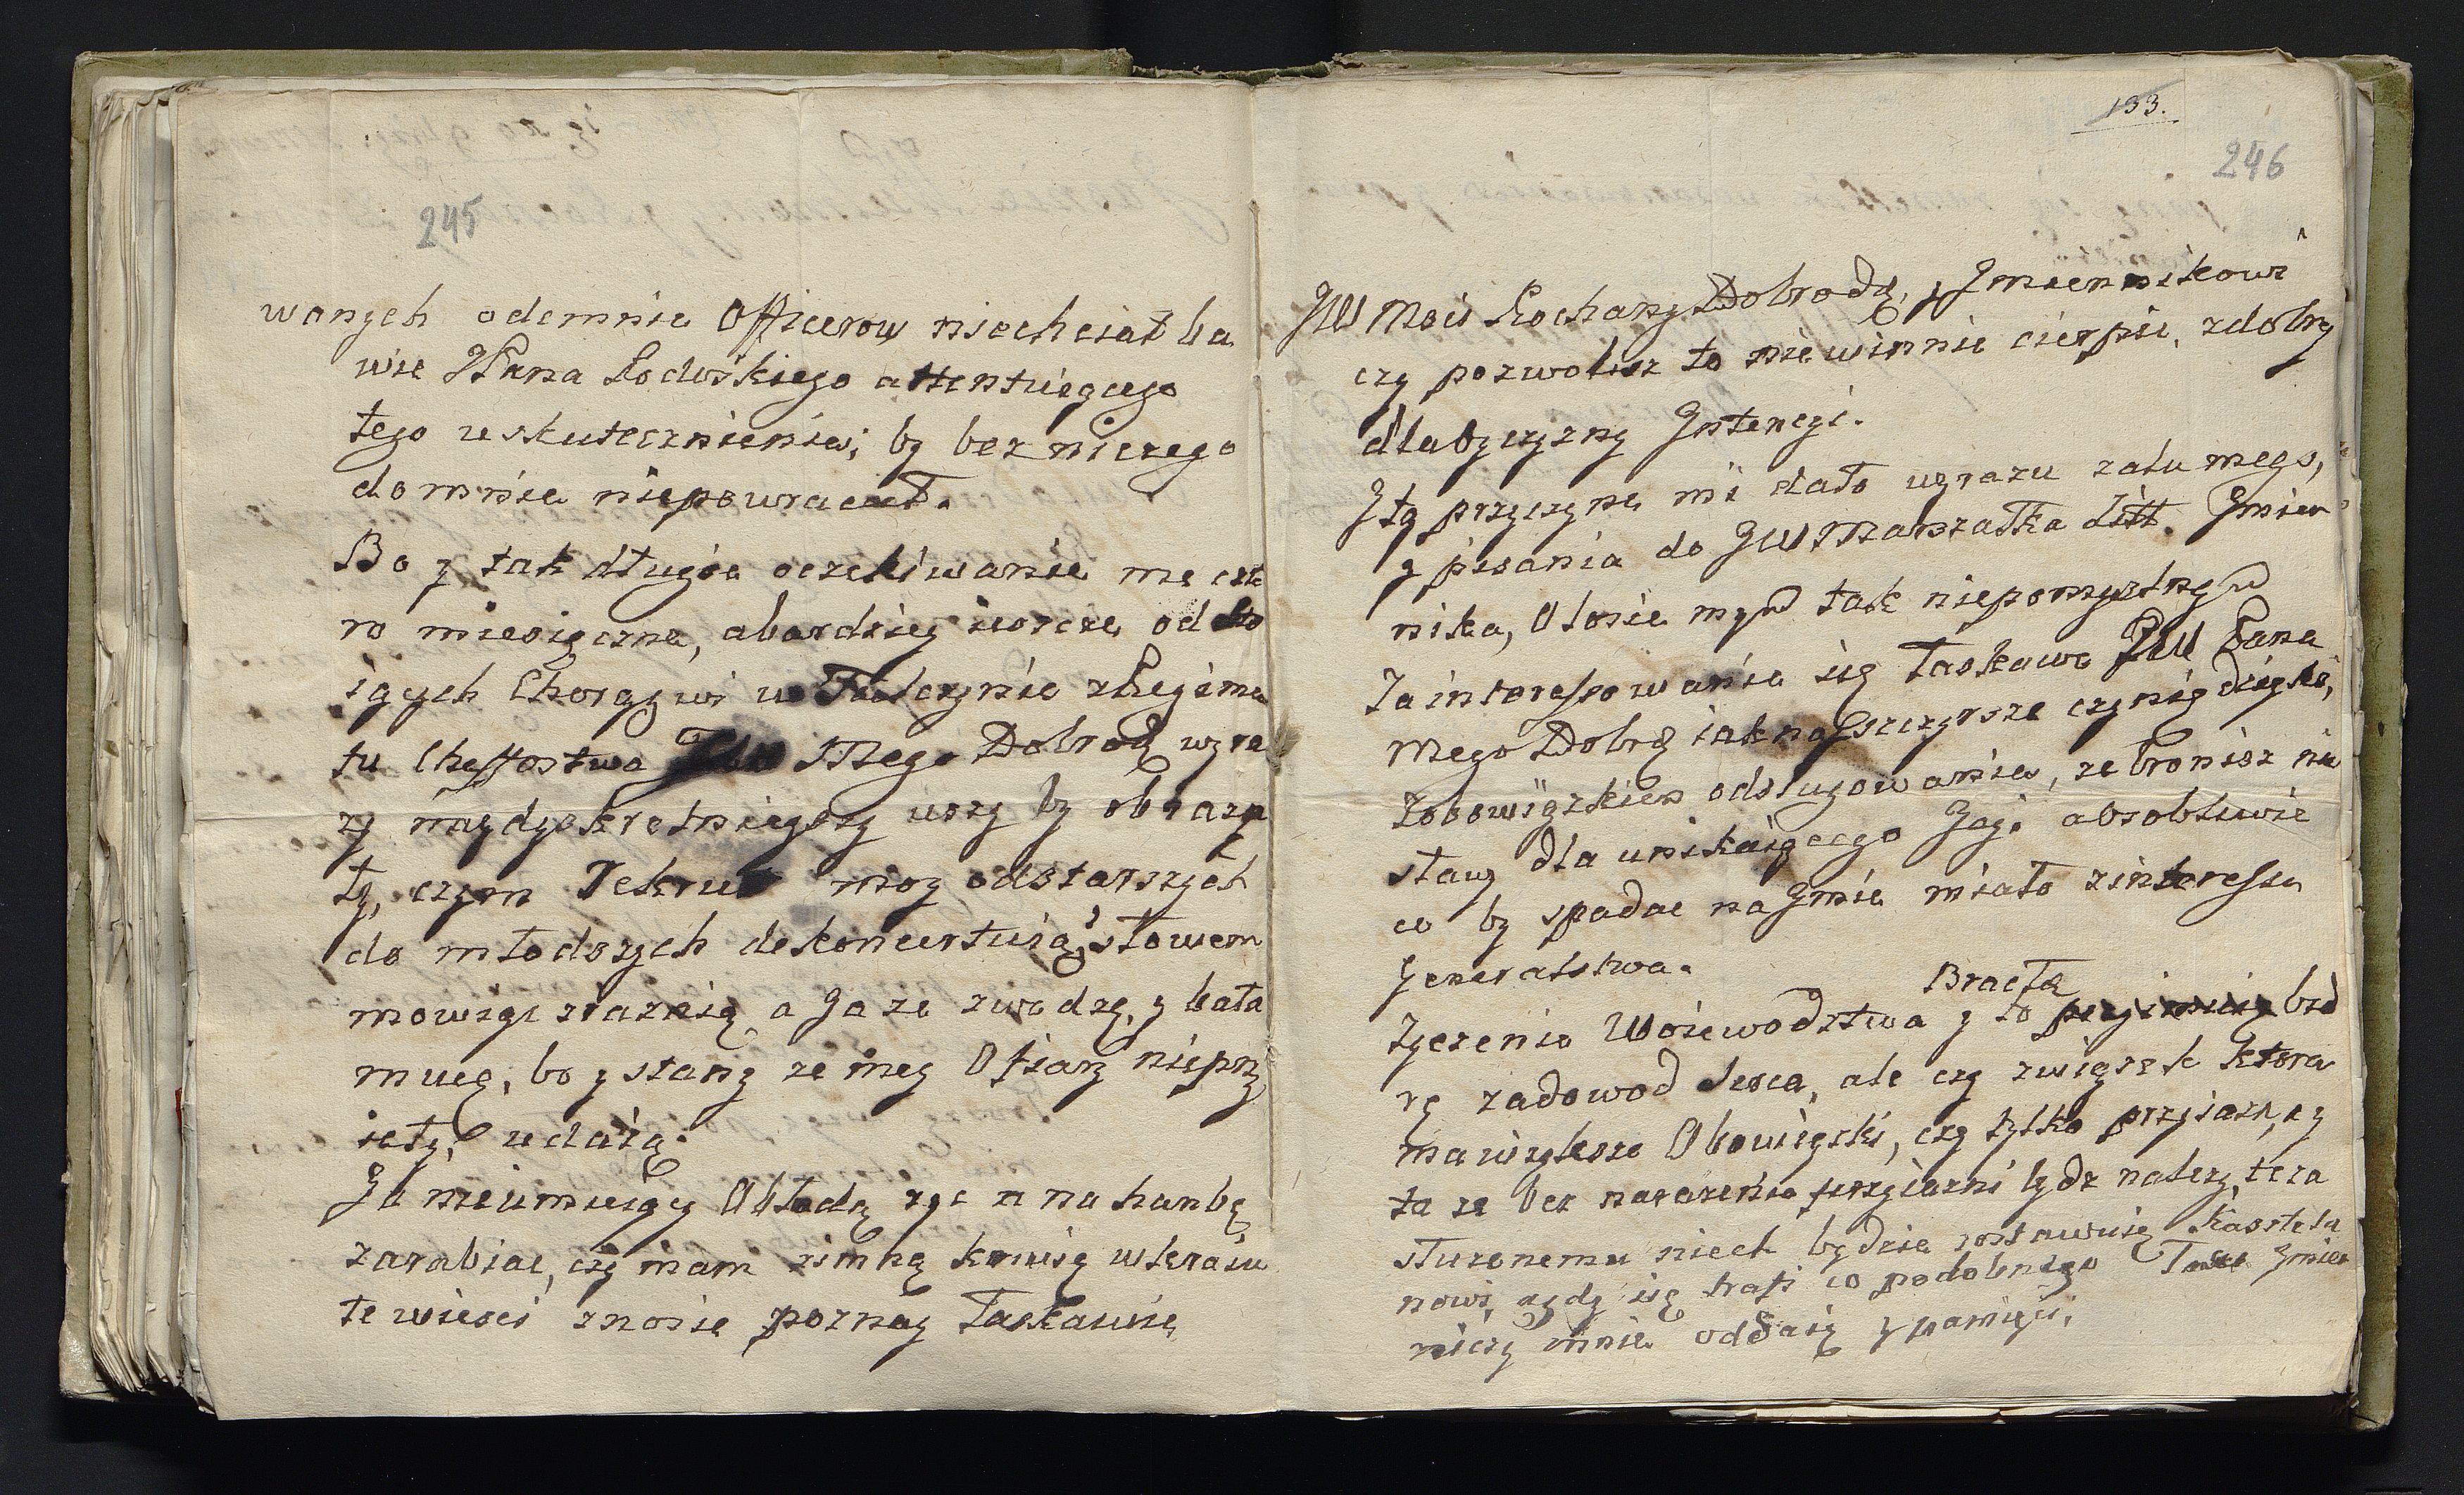 245
wanych odemnie Officerow niechciał ba
wie JPana Łodwskiego attentuiącego
tego uskutecznienia; by bez niczego
do mnie niepowracał.
Bo y tak długie oczekiwanie me czte
ro miesięczne, a bardziey ieszcze od sto
iących Chorągwi w Tulczynie z Regime
tu Cheffostwa Mego Dobrodz wyra
zy naydyskretnieyszy uszy by obrazy
ły, czym Rekrut moy od starszych
do młodszych dekoncertuią, słowem
mowiąc z razaią a Ja ze zwodzę, y bała
mucę, bo y stany ze mey Ofiary nieprzy
ięły, udaią.
Ja nieumieiący Obłudą życ a na hanbę
zarabiac, czy mam zimną krwią w kraiu
te wiesci znosic poznay łaskawie
133.
246
JW Mois Kochany Dobrodz, y Jmiennikowi
czy pozwolisz to niewinnie cierpic, z dobry
dla Oyczyzny Jntencyi.
J tą przyczyna mi dało wyrazu zalu mego,
y pisania do JW Marszałka Litt. Jmien
nika, O losie mym tak niepomyslnym
Za interessowanie się łaskawe JW Pana
Mego Dobrdz iak nayszczyrsze czynię dzięki,
Zobowiązkiem odsługowania, ze bronisz nie
sławy dla unikaiącego Jey. absolutnie
co by spadac na Jmie miało z interessu
Generalstwa.
Zyczenie Woiewodztwa y to Bracta bio
rę za dowod serca, ale czy związek ktora
ma większe Obowiązki, czy tylko przyiazn, czy
ta ze bez narazenia przyiazni bydz nalezy, te za
słuzonemu niech będzie zostawuię Kasztela
nowi, a gdy się trafi co podobnego Twe Jmien
niczy mnie oddaię y pamięci,